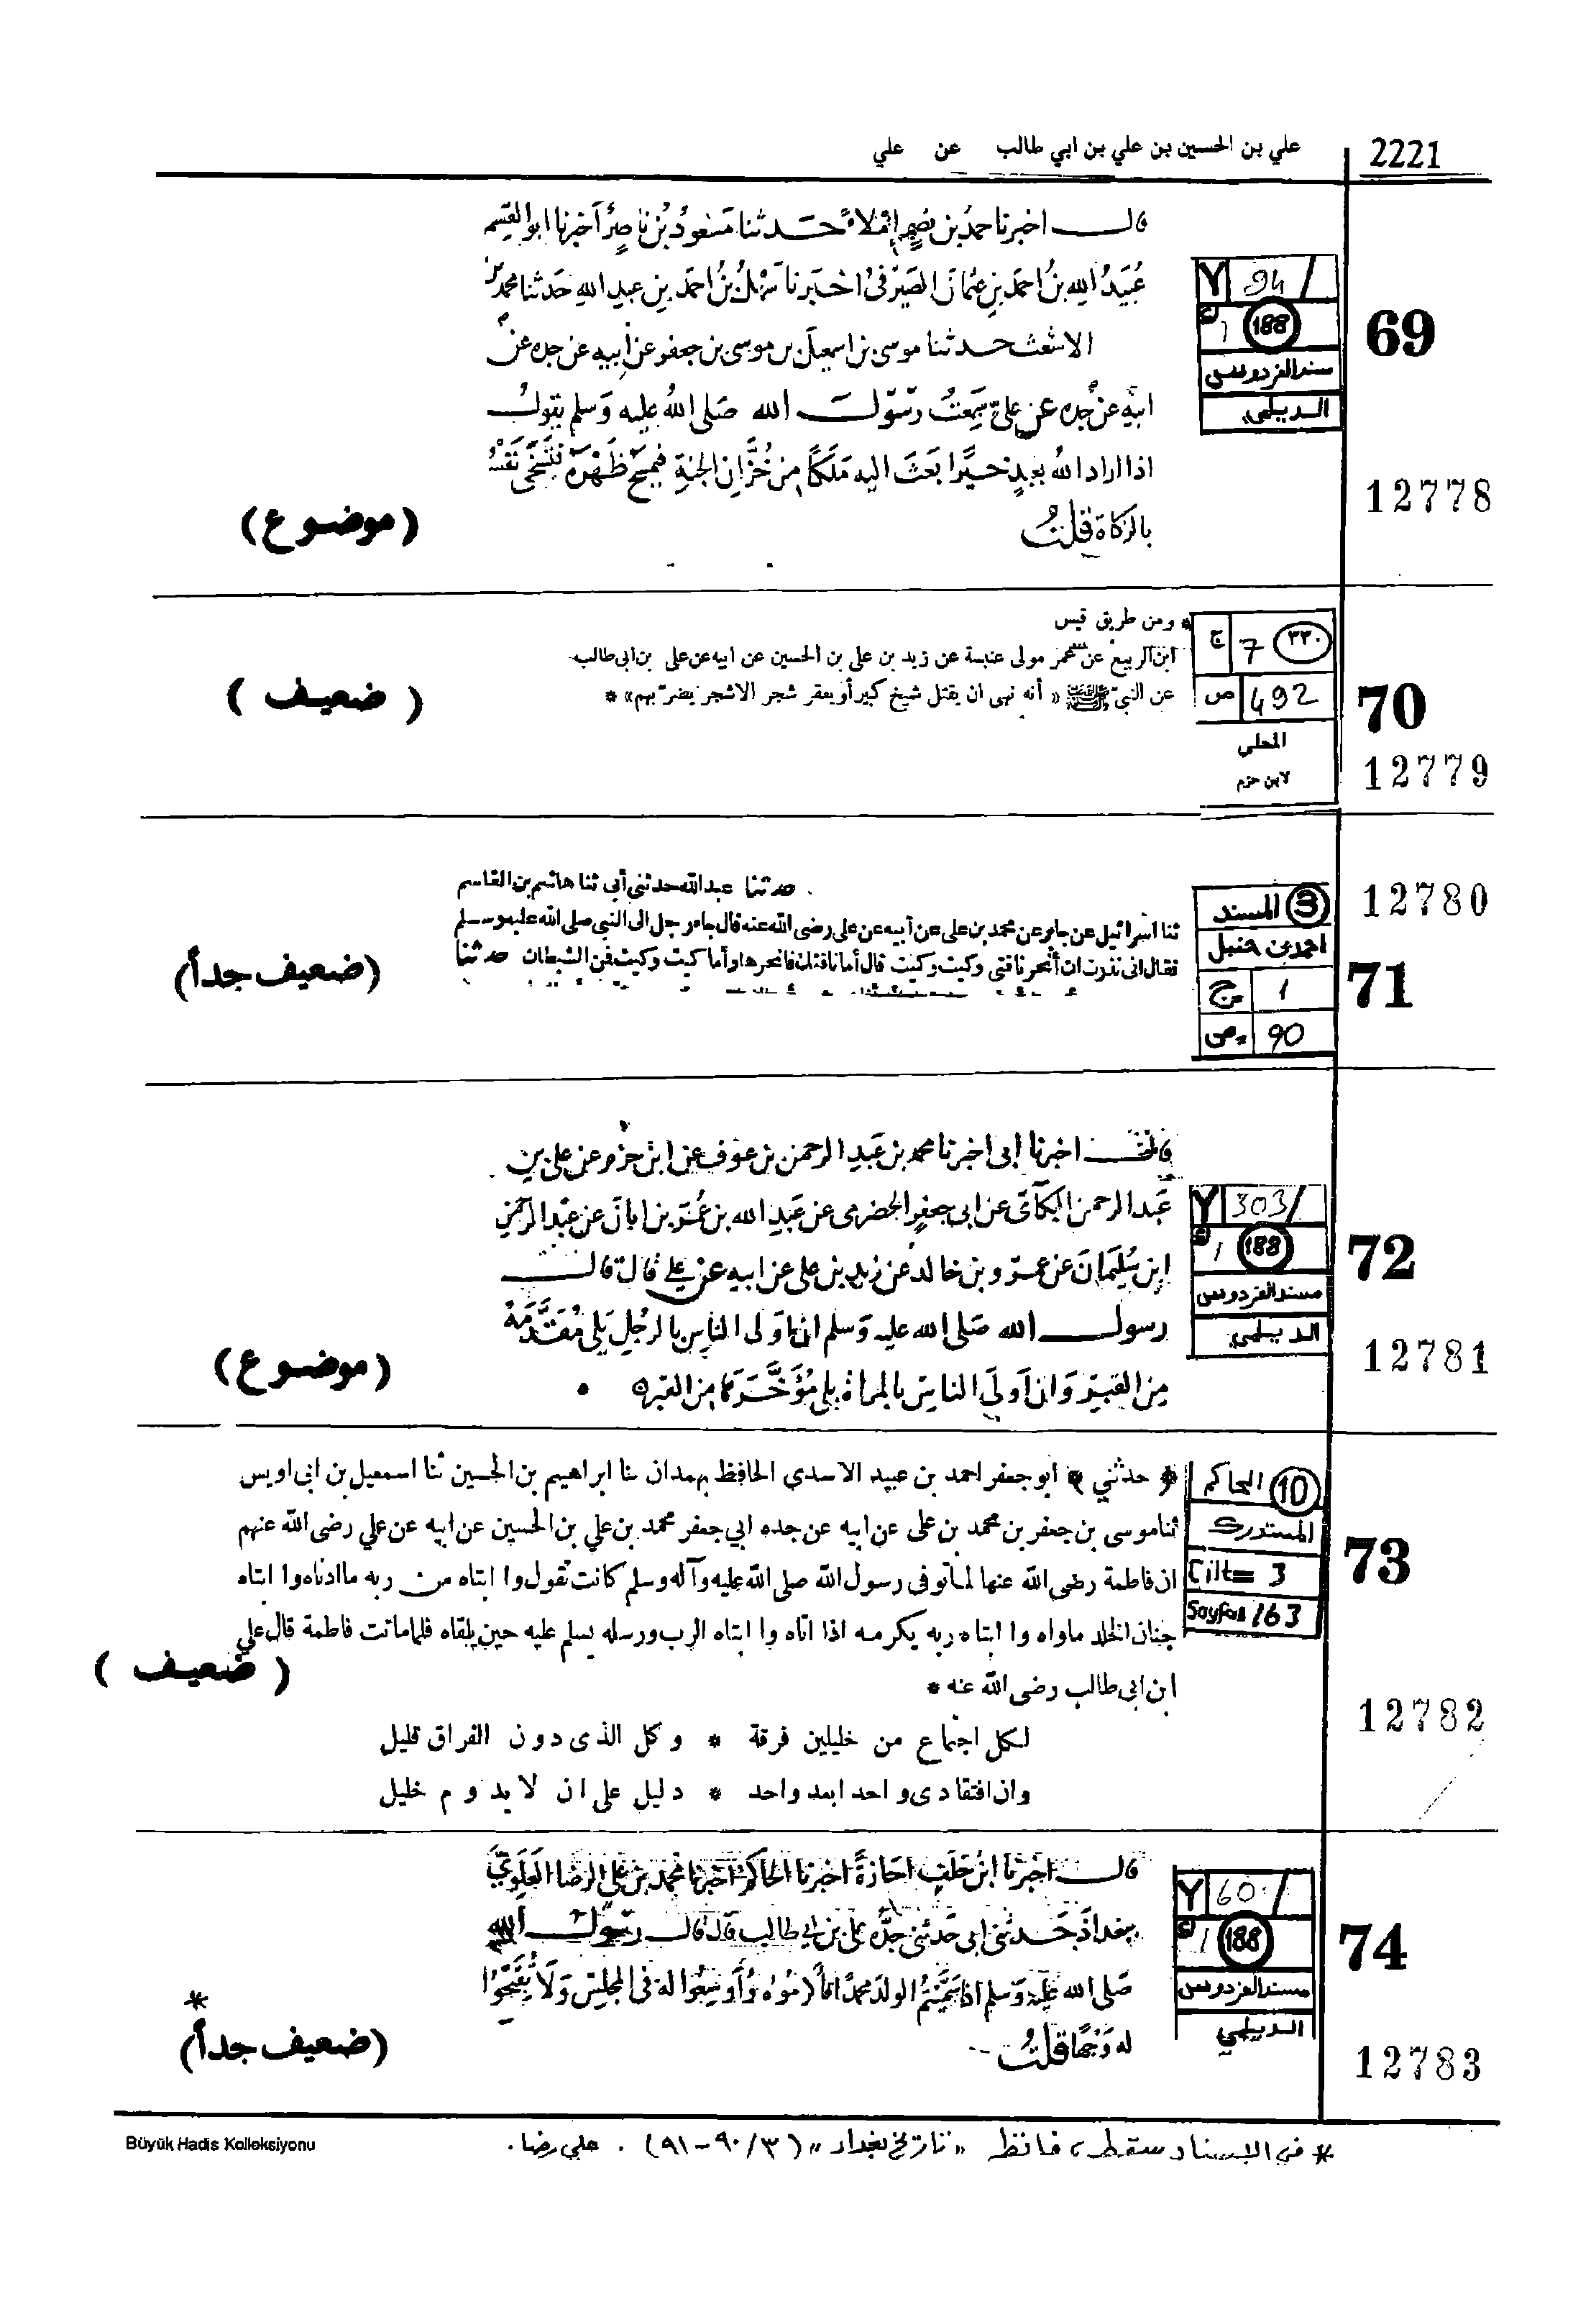 علي بن الحسين بن علي بن ابي طالب عن علي
2221
قال اخبرنا حمد بن نصر إملاءً حدثنا مسعود بن ناصر أخبرنا ابو القسم
عبيد الله بن احمد بن عثمان الصيرفي اخبرنا سهل بن احمد بن عبد الله حدثنا محمد بن
الاشعث حدثنا موسى بن اسمعيل بن موسى بن جعفر عن أبيه عن جده عن
ابيه عن جده عن علي سمعت رسول الله صلى الله عليه وسلم يقول
اذا اراد الله بعبد خيرا بعث اليه ملكا من خزان الجنة فيمسح ظهره فتسخى نفسه
بالزكاة قلت
(موضوع)
Y 94 /
ك 1 188
مسند الفردوس
الديلمي
69
12778
* ومن طريق قيس
ابن الربيع عن عمر مولى عنبسة عن زيد بن علي بن الحسين عن ابيه عن علي بن ابي طالب
عن النبي ﷺ « أنه نهى ان يقتل شيخ كبير أو يعقر شجر الا شجر يضر بهم » *
( ضعيف )
ج 7 ٣٣٠
ص 492
المحلى
لابن حزم
70
12779
حدثنا عبدالله حدثني أبي ثنا هاشم بن القاسم
ثنا اسرائيل عن جابر عن محمد بن على عن أبيه عن على رضى الله عنه قال جاء رجل الى النبى صلى الله عليه وسلم
فقال انى نذرت ان أنحر ناقتى وكيت وكيت قال أما ناقتك فانحرها وأما كيت وكيت فمن الشيطان حدثنا
(ضعيف جداً)
3 المسند
احمد بن حنبل
ج 1
ص 90
12780
71
قال اخبرنا ابي اخبرنا محمد بن عبد الرحمن بن عوف عن ابن حزم عن علي بن
عبد الرحمن البكائى عن ابي جعفر الحضرمي عن عبد الله بن عمر بن ابان عن عبد الرحمن
ابن سليمان عن عمرو بن خالد عن زيد بن علي عن ابيه عن علي قال قال
رسول الله صلى الله عليه وسلم ان اولى الناس بالرجل يلي مقدمه
من القبر وان أولى الناس بالمرأة يلي مؤخرها من القبر
(موضوع)
Y 303 /
ك 1 188
مسند الفردوس
الديلمي
72
12781
* حدثني * ابو جعفر احمد بن عبيد الاسدي الحافظ بهمدان ثنا ابراهيم بن الحسين ثنا اسمعيل بن ابى اويس
ثنا موسى بن جعفر بن محمد بن على عن ابيه عن جده ابي جعفر محمد بن علي بن الحسين عن ابيه عن علي رضى الله عنهم
ان فاطمة رضى الله عنها لما توفى رسول الله صلى الله عليه وآله وسلم كانت تقول وا ابتاه من ربه ما ادناه وا ابتاه
جنان الخلد ماواه وا ابتاه ربه يكرمه اذا اتاه وا ابتاه الرب ورسله يسلم عليه حين يلقاه فلما ماتت فاطمة قال علي
ابن ابى طالب رضى الله عنه *
لكل اجتماع من خليلين فرقة * وكل الذى دون الفراق قليل
وان افتقادى واحدا بعد واحد * دليل على ان لا يدوم خليل
( ضعيف )
10 الحاكم
المستدرك
Cilt= 3
Sayfa= 163
73
12782
قال اخبرنا ابن خلف اجازةً اخبرنا الحاكم اخبرنا محمد بن علي الرضا العلوي
ببغداذ حدثني ابي حدثني جده علي بن ابي طالب قال قال رسول الله
صلى الله عليه وسلم اذا سميتم الولد محمدا فأكرموه وأوسعوا له في المجلس ولا تقبحوا
له وجها قلت
*
(ضعيف جداً)
Y 60 /
ك 1 188
مسند الفردوس
الديلمي
74
12783
* في الإسناد سقط، فانظر « تاريخ بغداد » (٣/٩٠-٩١) . علي رضا .
Büyük Hadis Kolleksiyonu